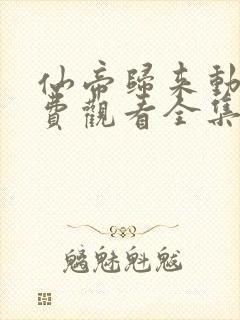 仙帝歸来動
費觀看全集
魑魅魁魃